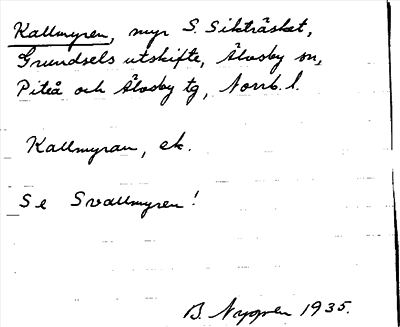 Kallmyren, myr S. Sikträsket,
Grundsels utskifte, Älvsby sn,
Piteå och Älvsby tg, Norrb. l.
Kallmyran, ek.
Se Svallmyren!
B. Nygren 1935.